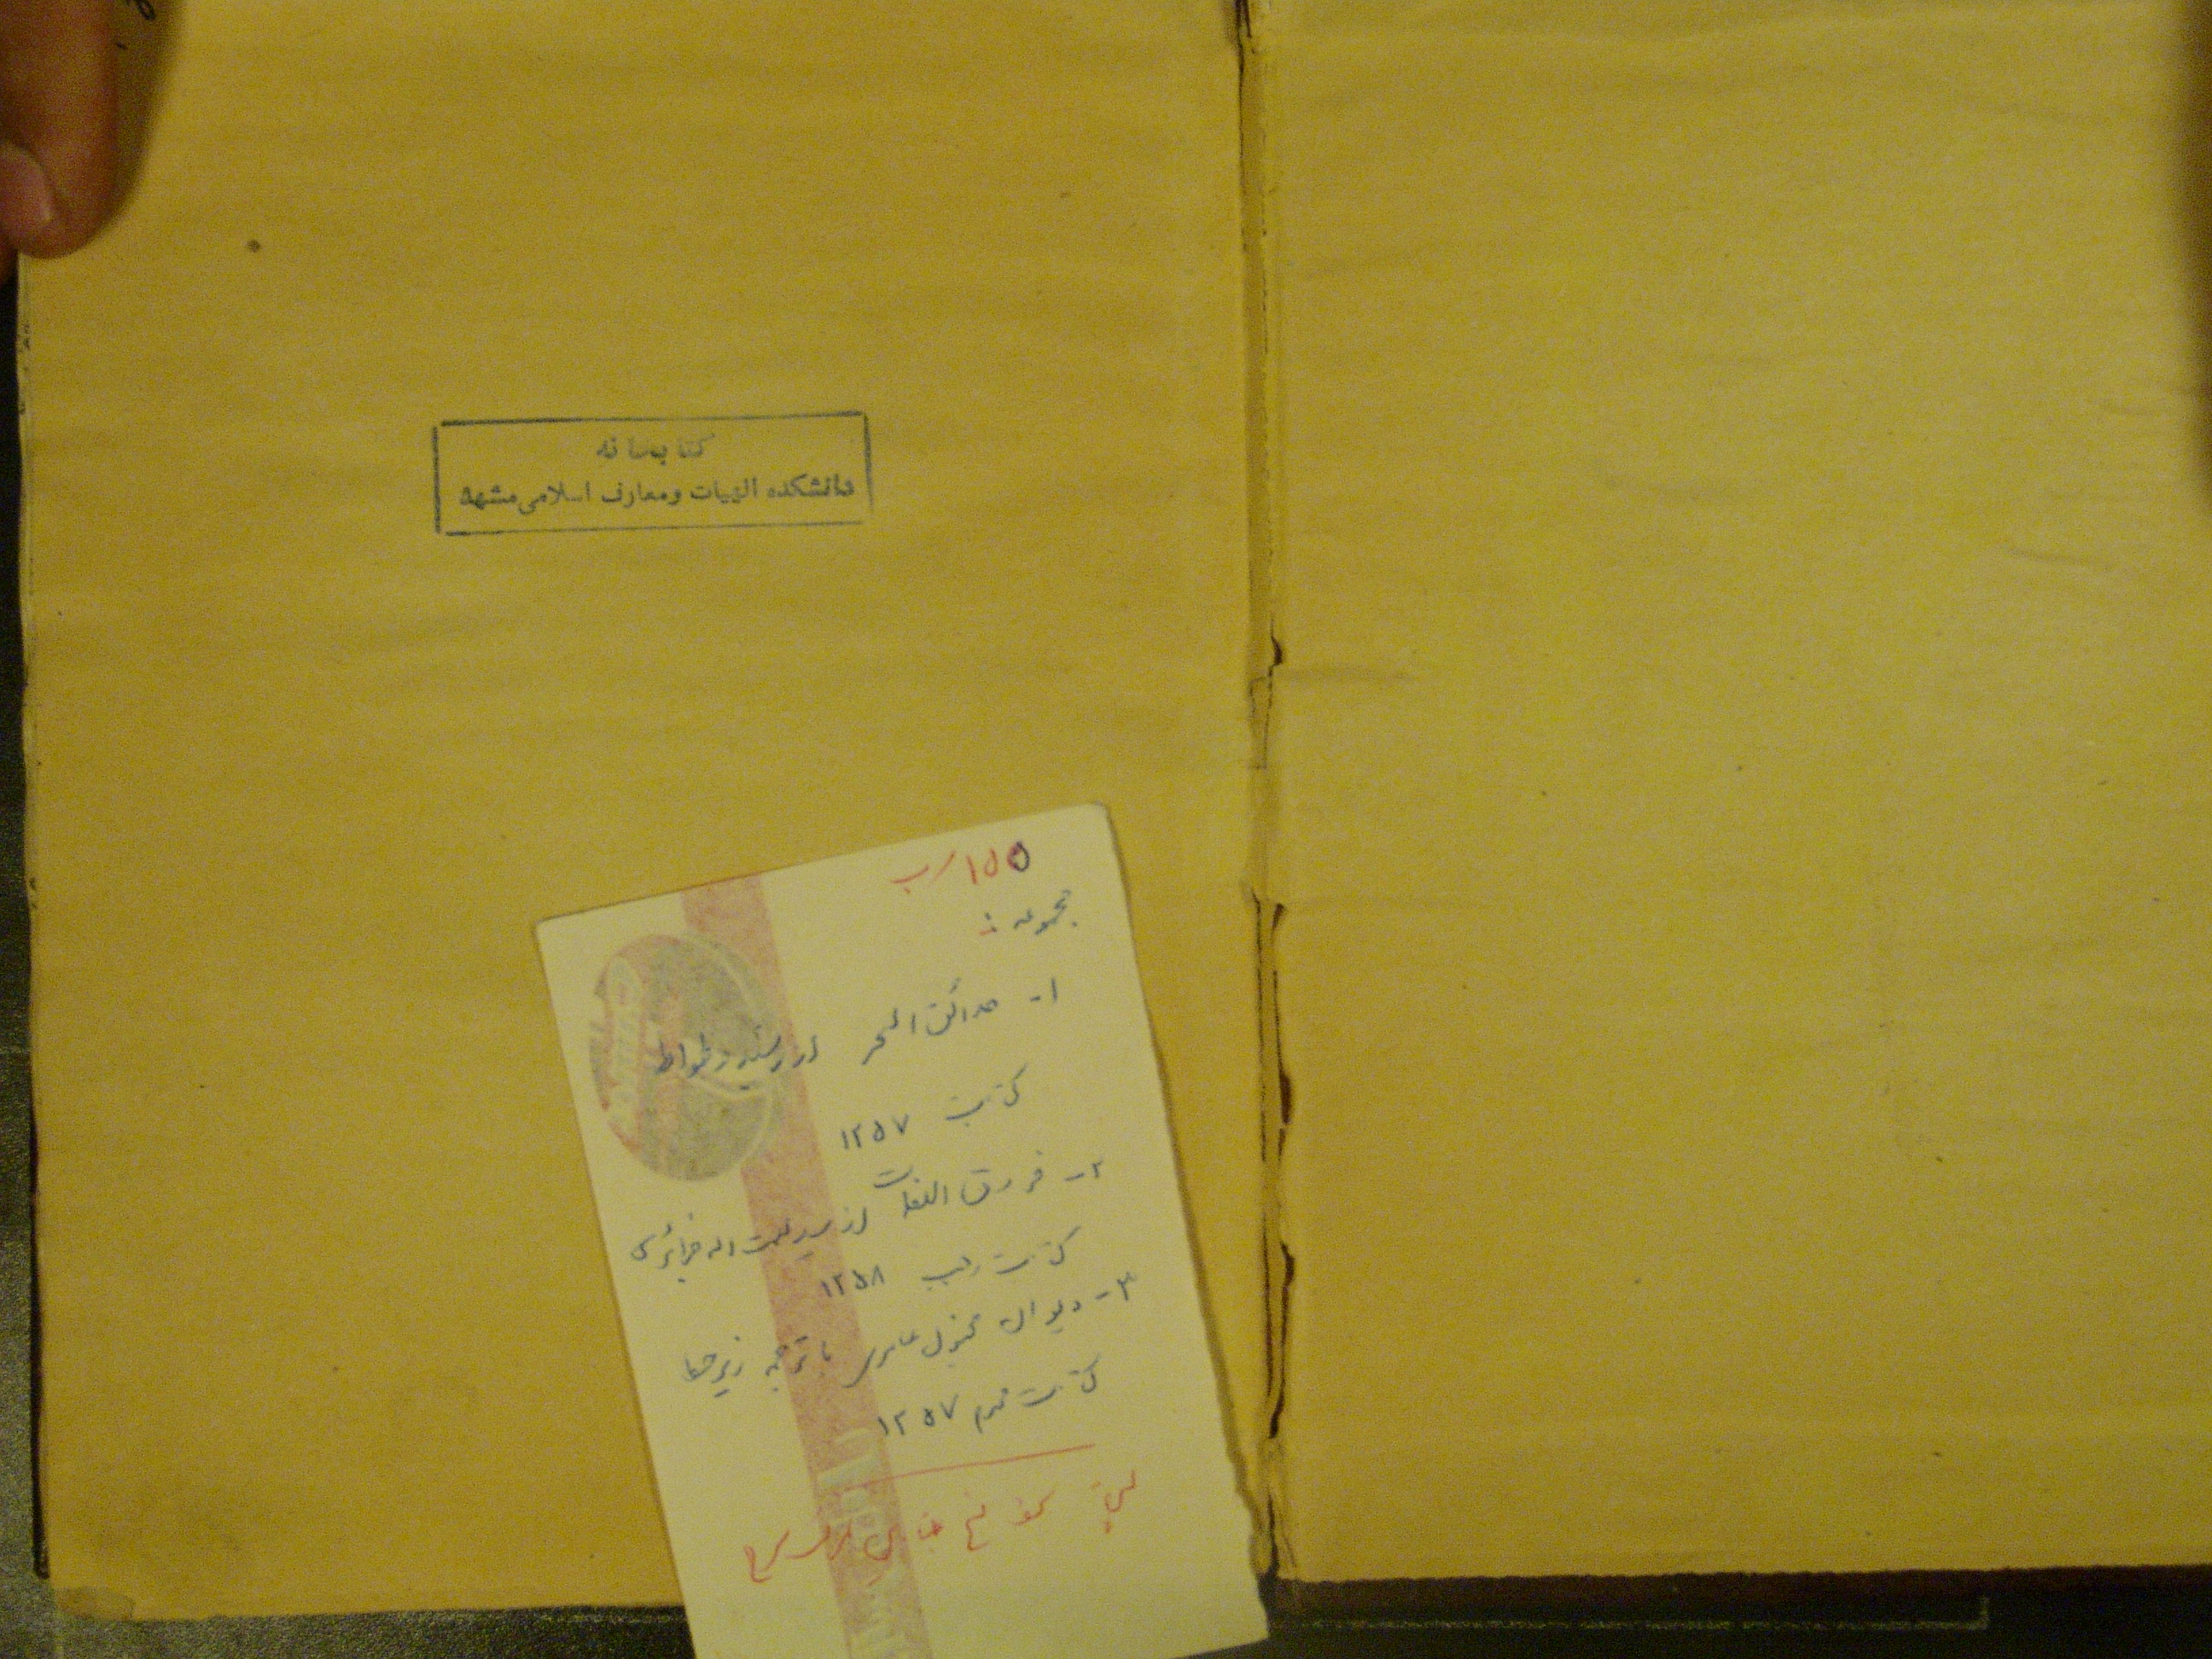 کتابخانه
دانشکده الهیات ومعارف اسلامی مشهد
۱۵۵/ب
مجموعه :
۱- حدائق السحر از رشید وطواط
کتابت ۱۲۵۷
۲- فروق اللغات از سید نعمت اله جزائری
کتابت رجب ۱۲۵۸
۳- دیوان مجنون عامری با ترجمه زیر خط
کتابت محرم ۱۲۵۷